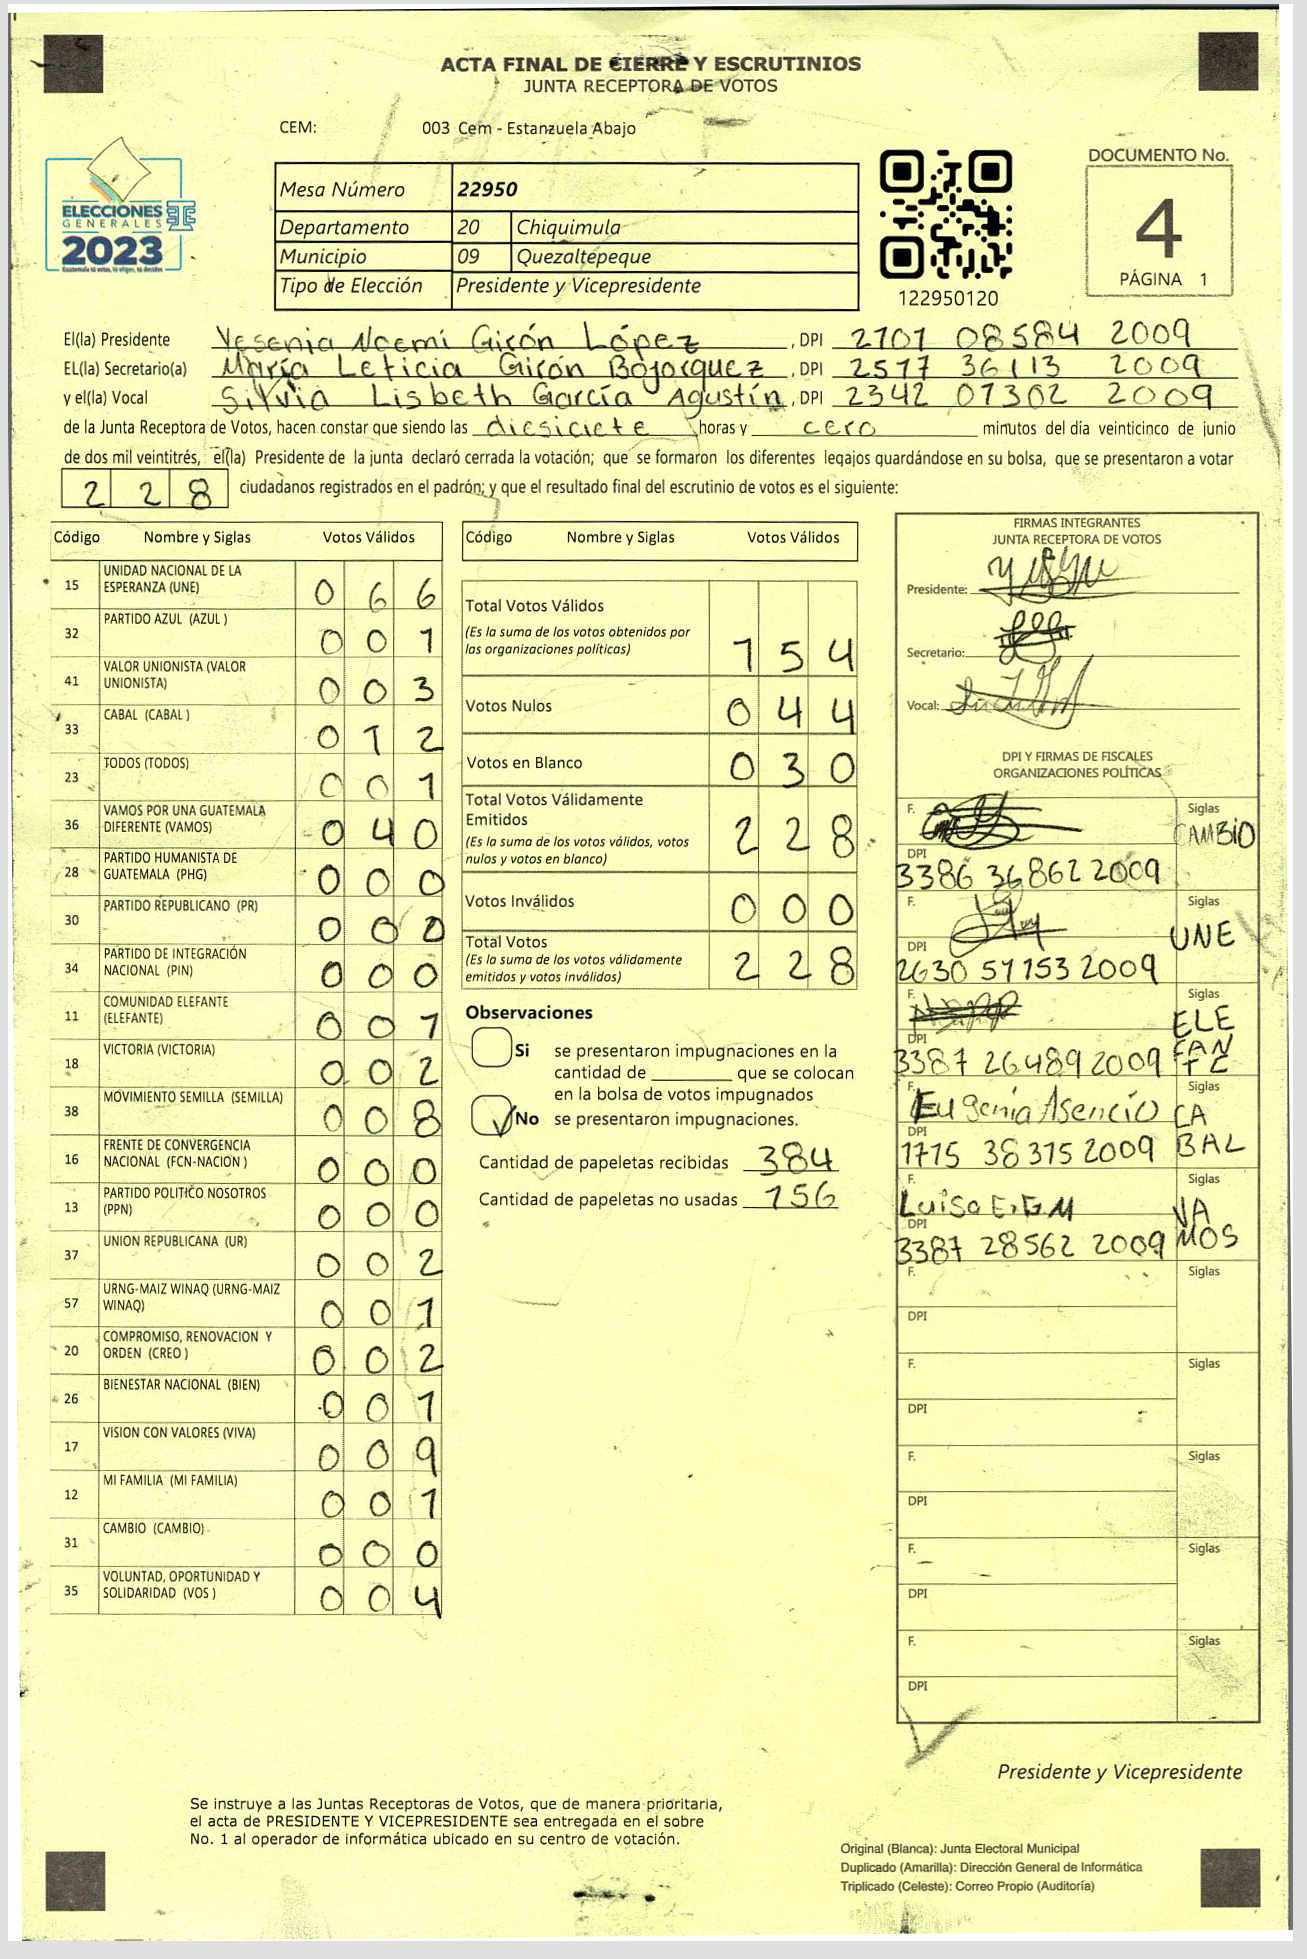 ACTA FINAL DE CIERRE Y ESCRUTINIOS
JUNTA RECEPTORA DE VOTOS
CEM: 003 Cem - Estanzuela Abajo
ELECCIONES
GENERALES
2023
Mesa Número 22950
Departamento 20 Chiquimula
Municipio 09 Quezaltepeque
Tipo de Elección Presidente y Vicepresidente
122950120
DOCUMENTO No.
4
PÁGINA 1
El(la) Presidente Yesenia Noemí Girón López, DPI 2701 08584 2009
EL(la) Secretario(a) María Leticia Girón Bojorquez, DPI 2577 36113 2009
y el(la) Vocal Silvia Lisbeth García Agustín, DPI 2342 07302 2009
de la Junta Receptora de Votos, hacen constar que siendo las diesiciete horas y cero minutos del día veinticinco de junio
de dos mil veintitrés, el(la) Presidente de la junta declaró cerrada la votación; que se formaron los diferentes legajos quardándose en su bolsa, que se presentaron a votar
228 ciudadanos registrados en el padrón; y que el resultado final del escrutinio de votos es el siguiente:
Código Nombre y Siglas Votos Válidos
15 UNIDAD NACIONAL DE LA ESPERANZA (UNE) 066
32 PARTIDO AZUL (AZUL ) 001
41 VALOR UNIONISTA (VALOR UNIONISTA) 003
33 CABAL (CABAL ) 012
23 TODOS (TODOS) 001
36 VAMOS POR UNA GUATEMALA DIFERENTE (VAMOS) 040
28 PARTIDO HUMANISTA DE GUATEMALA (PHG) 000
30 PARTIDO REPUBLICANO (PR) 000
34 PARTIDO DE INTEGRACIÓN NACIONAL (PIN) 000
11 COMUNIDAD ELEFANTE (ELEFANTE) 001
18 VICTORIA (VICTORIA) 002
38 MOVIMIENTO SEMILLA (SEMILLA) 008
16 FRENTE DE CONVERGENCIA NACIONAL (FCN-NACION ) 000
13 PARTIDO POLITICO NOSOTROS (PPN) 000
37 UNION REPUBLICANA (UR) 002
57 URNG-MAIZ WINAQ (URNG-MAIZ WINAQ) 001
20 COMPROMISO, RENOVACION Y ORDEN (CREO ) 002
26 BIENESTAR NACIONAL (BIEN) 001
17 VISION CON VALORES (VIVA) 009
12 MI FAMILIA (MI FAMILIA) 001
31 CAMBIO (CAMBIO) 000
35 VOLUNTAD, OPORTUNIDAD Y SOLIDARIDAD (VOS ) 004
Código Nombre y Siglas Votos Válidos
Total Votos Válidos
(Es la suma de los votos obtenidos por
las organizaciones políticas) 154
Votos Nulos 044
Votos en Blanco 030
Total Votos Válidamente
Emitidos
(Es la suma de los votos válidos, votos
nulos y votos en blanco) 228
Votos Inválidos 000
Total Votos
(Es la suma de los votos válidamente
emitidos y votos inválidos) 228
Observaciones
Si se presentaron impugnaciones en la
cantidad de ________ que se colocan
en la bolsa de votos impugnados
No se presentaron impugnaciones.
Cantidad de papeletas recibidas 384
Cantidad de papeletas no usadas 156
FIRMAS INTEGRANTES
JUNTA RECEPTORA DE VOTOS
Presidente:
Secretario:
Vocal:
DPI Y FIRMAS DE FISCALES
ORGANIZACIONES POLÍTICAS
F. Siglas CAMBIO
DPI 3386 36862 2009
F. Siglas UNE
DPI 2630 51153 2009
F. Siglas ELEFANTE
DPI 3387 26489 2009
F. Eugenia Asencio Siglas CABAL
DPI 1715 38375 2009
F. Luisa E.G.M Siglas VAMOS
DPI 3387 28562 2009
F. Siglas
DPI
F. Siglas
DPI
F. Siglas
DPI
F. Siglas
DPI
F. Siglas
DPI
Presidente y Vicepresidente
Se instruye a las Juntas Receptoras de Votos, que de manera prioritaria,
el acta de PRESIDENTE Y VICEPRESIDENTE sea entregada en el sobre
No. 1 al operador de informática ubicado en su centro de votación.
Original (Blanca): Junta Electoral Municipal
Duplicado (Amarilla): Dirección General de Informática
Triplicado (Celeste): Correo Propio (Auditoría)